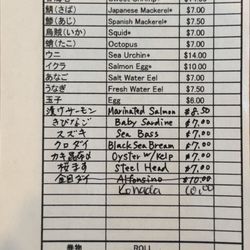 Sweet Shrimp* $7.50
鯖(さば) Japanese Mackerel* $7.00
鯵(あじ) Spanish Mackerel* $7.50
烏賊(いか) Squid* $7.00
蛸(たこ) Octopus $7.00
ウニ Sea Urchin* $14.00
イクラ Salmon Egg* $10.00
あなご Salt Water Eel $7.50
うなぎ Fresh Water Eel $7.50
玉子 Egg $6.00
漬けサーモン Marinated Salmon $8.50
きびなご Baby Sardine $7.00
スズキ Sea Bass $7.00
クロダイ Black Sea Bream $7.00
カキ昆布〆 Oyster w/ Kelp $7.00
桜ます Steel Head $7.00
金目ダイ Alfonsino $10.00
Kohada
巻物 ROLL